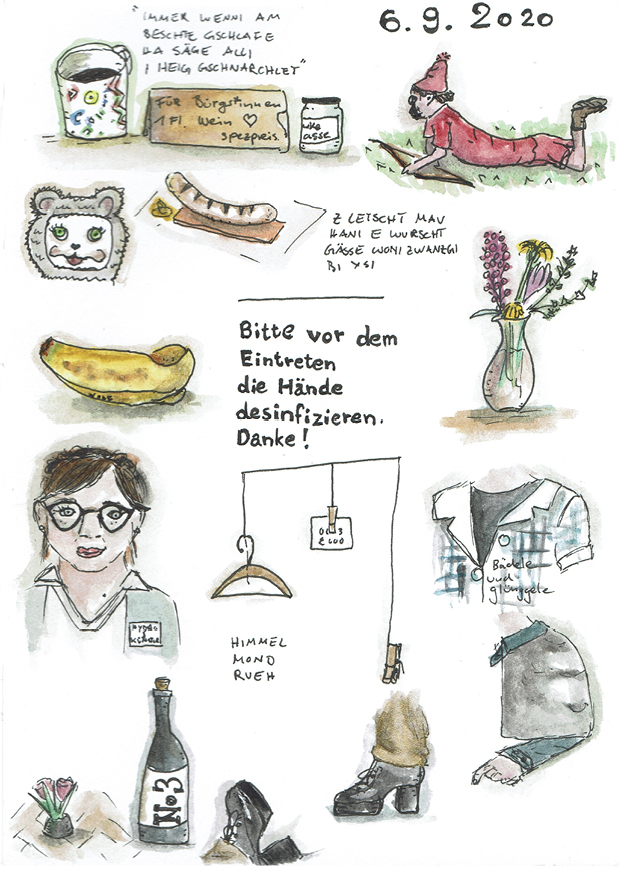 "IMMER WENNI AM
BESCHTE GSCHLAFE
HA SÄGE ALLI
I HEIG GSCHNARCHLET"
6.9.2020
Für Bürger*innen
1 Fl. Wein ♡
spezpreis.
asse
Z LETSCHT MAU
HANI E WURSCHT
GÄSSE WONI ZWANZGI
BI XSI
Bitte vor dem
Eintreten
die Hände
desinfizieren.
Danke!
Bädele
und
glünggele
HIMMEL
MOND
RUEH
No3